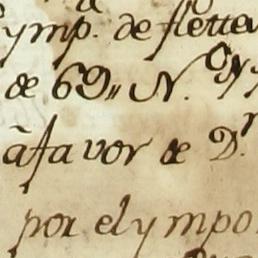 ymp. de flette
de 69,, N.
â favor de D.r
por el ympo